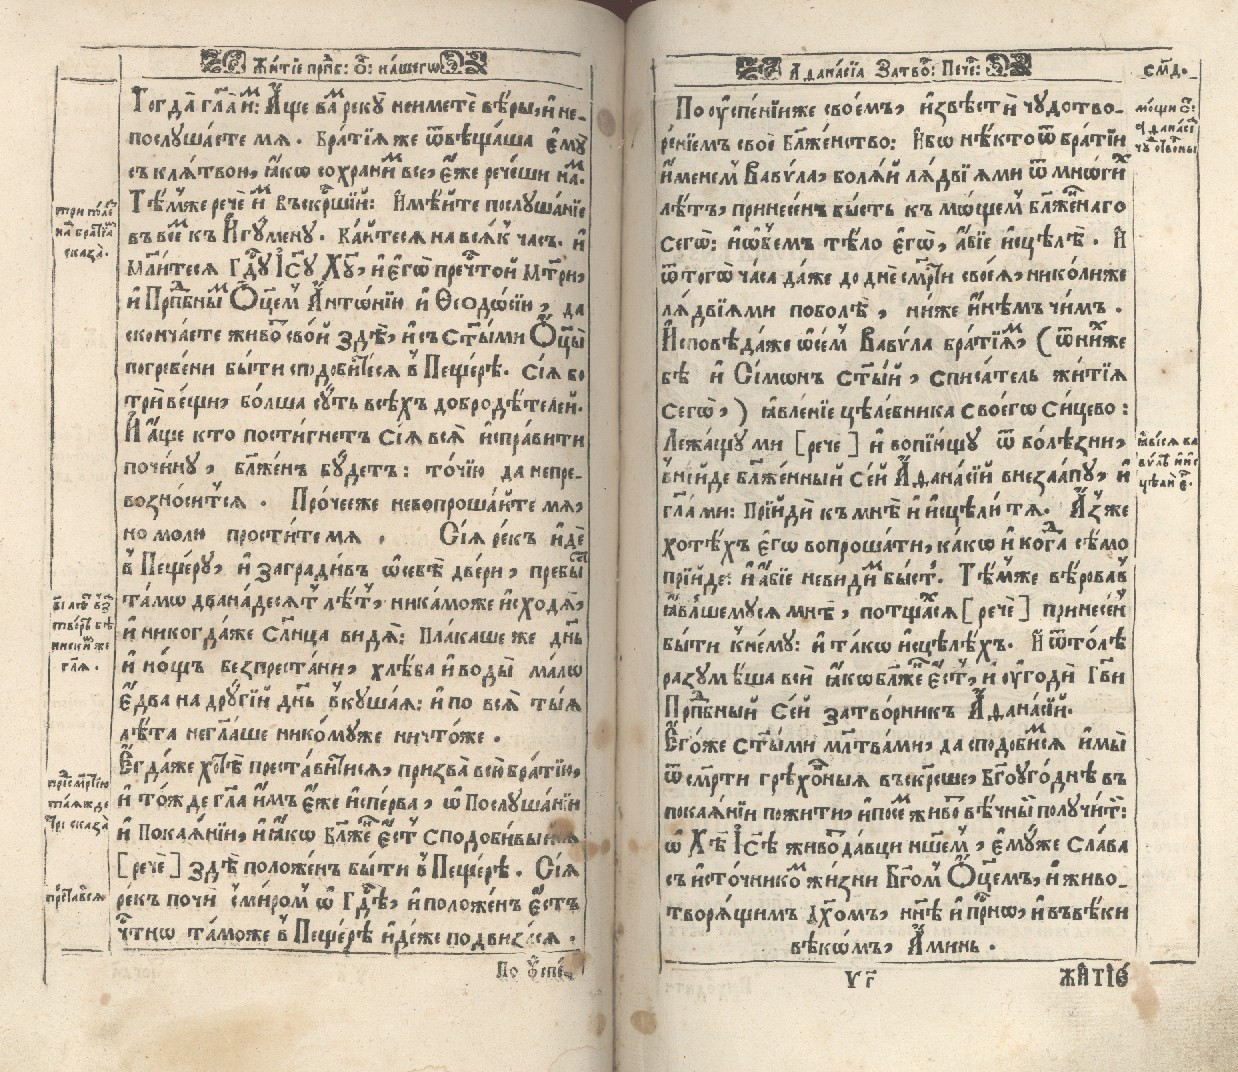 Житїе прпⷣб: ѻ҃: на́шегѡ
Тогда̀ гл҃а и҆̀мъ: А҆́ще ва́мъ рекꙋ̀ неимете вѣ́ры, и҆ не-
послꙋ́шаете мѧ . Бра́тїѧ же ѿвѣща́ша є҆мꙋ̀
съ клѧ́твою, ꙗ҆́кѡ сохрани́мъ все, є҆́же рече́ши на́мъ.
Тѣ́мже речѐ и҆̀мъ въскрⷭ҇шїй: И҆мѣ́йте послꙋша́нїе
въ все́мъ къ И҆гꙋ́менꙋ. Ка́йтесѧ на всѧ́къ часъ. и҆
мл҃и́тесѧ Гдⷭ҇ꙋ І҆с҃ꙋ Хꙋ҃, и҆ є҆гѡ̀ пречⷭ҇той Мт҃ри,
и҆ Прпⷣбнымъ Ѻ҆ц҃е́мъ А҆нтѡ́нїю и҆ Ѳеодо́сїю, да
сконча́ете живо́тъ сво́й здѣ̀, и҆ съ ст҃ы́ми Ѻ҆ц҃ы̀
погребе́ни бы́ти сподо́битесѧ в̾ Пеще́рѣ. Сїѧ̀ бо
трѝ ве́щи, бо́лша сꙋ́ть всѣ́хъ добродѣ́телей.
И҆ а҆́ще кто пости́гнетъ сїѧ̀ всѧ̀ и҆спра́вити
по чи́нꙋ, бл҃же́нъ бꙋ́детъ: то́чїю да непре-
возно́ситсѧ . Про́чееже невопроша́йте мѧ,
но молю прости́те мѧ . Сїѧ̀ ре́къ и҆́де
в̾ Пеще́рꙋ, и҆ загради́въ ѡ҆ себѣ̀ две́ри, пребы́сть
та́мѡ двана́десѧтъ лѣ́тъ, ника́може и҆сходѧ̀,
и҆ никогда́же сл҃нца ви́дѧ: Пла́каше же дн҃ь
и҆ но́щъ безпреста́ни, хлѣ́ба и҆ воды̀ ма́лѡ
є҆́два на дрꙋгі́й дн҃ь вкꙋша́ѧ: и҆ по всѧ̀ ты́ѧ
лѣ́та негл҃аше нико́мꙋже ничто́же .
Є҆гда́же хотѣ̀ преста́витисѧ, призва̀ всю̀ бра́тїю,
и҆ то́жде гл҃а и҆́мъ є҆́же и҆спе́рва, ѡ҆ Послꙋша́нїи
и҆ Покаѧ́нїи, и҆ ꙗ҆́кѡ бл҃же́нъ є҆́сть сподо́бивыйсѧ
[речѐ] здѣ̀ положе́нъ бы́ти в̾ Пеще́рѣ. Сїѧ̀
ре́къ почѝ с̾ми́ромъ ѡ҆ Гдⷭ҇ѣ, и҆ положе́нъ є҆́сть
чⷭ҇тнѡ та́може в̾ Пеще́рѣ и҆дѣ́же подвиза́сѧ .
По ᲂу҆спе́-
три поле́з
на̑ бра́тїи
сказа̀.
вı҃ лѣ́тъ въ за
тво́рѣ бѣ
ни скимже
гл҃ѧ.
при сме́рти
та́ѧжде
трѝ сказа̀
преста́висѧ
А҆ѳана́сїѧ Затво́: Пече́: см҃д.
По ᲂу҆спе́нїиже свое́мъ, и҆звѣстѝ чꙋдотво-
ре́нїемъ своѐ бл҃же́нство: И҆́бѡ нѣ́кто ѿ бра́тїи
и҆́менемъ Вавѵ́ла, болѧ́й лѧ́двїѧми ѿ мно́гихъ
лѣ́тъ, принесе́нъ бы́сть къ мѡще́мъ бл҃же́ннаго
сегѡ̀: и҆ ѡ҆бе́мъ тѣ́ло є҆гѡ̀, а҆́бїе и҆сцѣлѣ̀. И҆
ѿ тогѡ̀ ча́са да́же до дн҃е смр҃ти своеѧ̀, нико́лиже
лѧ́двїѧми поболѣ̀, ни́же и҆нѣ́мъ чи́мъ .
И҆сповѣ́даже ѡ҆ се́мъ Вавѵ́ла бра́тїѧмъ, (ѿ ни́хже
бѣ̀ и҆ Сі́мѡнъ ст҃ы́й, списа́тель житїѧ̀
сегѡ̀,) ꙗ҆вле́нїе цѣле́бника своегѡ̀ си́цево:
Лежа́щꙋ ми [рече] и҆ вопїю́щꙋ ѿ болѣ́зни,
вни́йде бл҃же́нный се́й А҆ѳана́сїй внеза́апꙋ, и҆
гл҃а ми: Прїйдѝ къ мнѣ̀ и҆ и҆сцѣли́ тѧ. А҆́зже
хотѣ́хъ є҆гѡ̀ вопроша́ти, ка́кѡ и҆ когда̀ сѣ́мо
прїи́де: и҆ а҆́бїе неви́димъ бы́сть. Тѣ́мже вѣ́ровавъ
ꙗ҆вльшемꙋсѧ мнѣ̀, потща́хсѧ [речѐ] принесе́нъ
бы́ти к̾ немꙋ: и҆ та́кѡ и҆сцѣлѣ́хъ. И҆ ѿто́лѣ
разꙋмѣ́ша всѝ ꙗ҆́кѡ бл҃же́нъ є҆́сть, и҆ ᲂу҆годѝ Гдⷭ҇ви
Прпⷣбный се́й затво́рникъ А҆ѳана́сїй.
Є҆гѡ́же ст҃ы́ми мл҃твами, да сподо́бимсѧ и҆ мы̀
ѿ сме́рти грѣхо́вныѧ въскре́сше, Бг҃оꙋго́днѣ въ
покаѧ́нїи пожи́ти, и҆ по се́мъ живо́тъ вѣ́чный полꙋчи́ти:
ѡ҆ Хѣ҃ І҆с҃ѣ живода́вци на́шемъ, є҆мꙋ́же сла́ва
съ и҆сто́чникомъ жи́зни Бг҃омъ Ѻ҆ц҃е́мъ, и҆ живо-
творѧ́щимъ дх҃омъ, нн҃ѣ и҆ при́снѡ, и҆ въ вѣ́ки
вѣкѡ́мъ, А҆ми́нь .
Ѵг҃ Житїе́
мо́щи ѻ҃:
а҆ѳана́сїа
чꙋдотво́рны
ꙗ҆ви́сѧ ва
вѵ́лѣ и҆ и҆с
цѣлѝ є҆̀.